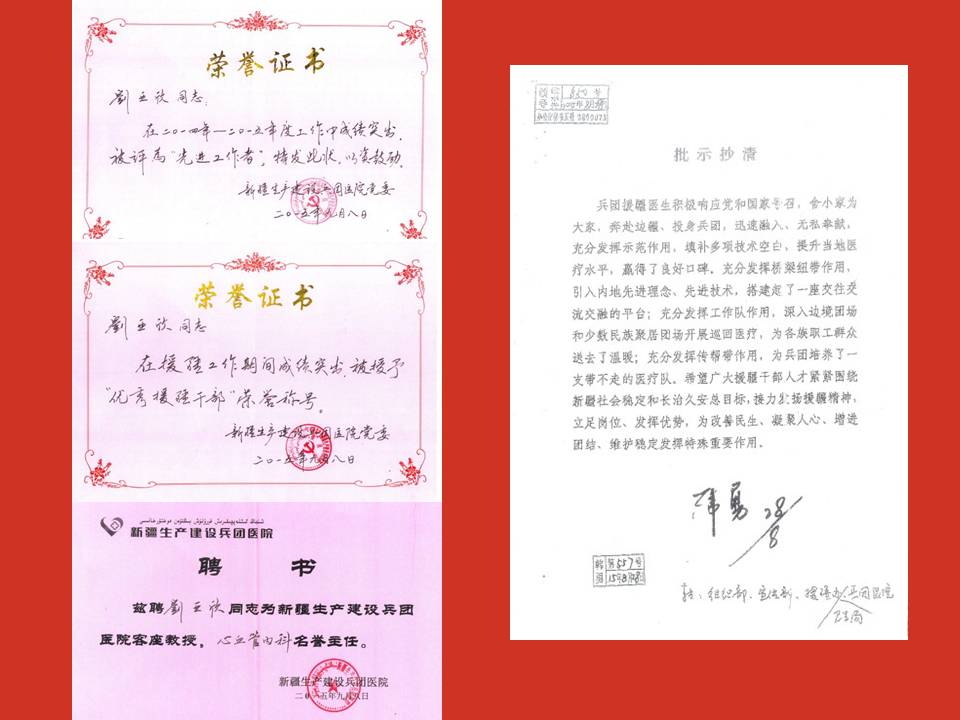 荣誉证书
劉亚欣同志:
在二〇一四年—二〇一五年度工作中成绩突出,
被评为"先进工作者",特发此状,以资鼓励。
新疆生产建设兵团医院党委
二〇一五年九月八日
荣誉证书
劉亚欣同志
在援疆工作期间成绩突出,被授予
"优秀援疆干部"荣誉称号。
新疆生产建设兵团医院党委
二〇一五年九月八日
新疆生产建设兵团医院
聘 书
兹聘劉亚欣同志为新疆生产建设兵团
医院客座教授,心血管内科名誉主任。
新疆生产建设兵团医院
二〇一五年九月八日
批示抄清
兵团援疆医生积极响应党和国家号召,舍小家为
大家,奔赴边疆、投身兵团,迅速融入、无私奉献,
充分发挥示范作用,填补多项技术空白,提升当地医
疗水平,赢得了良好口碑。充分发挥桥梁纽带作用,
引入内地先进理念、先进技术,搭建起了一座交往交
流交融的平台;充分发挥工作队作用,深入边境团场
和少数民族聚居团场开展巡回医疗,为各族职工群众
送去了温暖;充分发挥传帮带作用,为兵团培养了一
支带不走的医疗队。希望广大援疆干部人才紧紧围绕
新疆社会稳定和长治久安总目标,接力发扬援疆精神,
立足岗位、发挥优势,为改善民生、凝聚人心、增进
团结、维护稳定发挥特殊重要作用。
韩勇 28/8
转:组织部、宣传部、援疆办、兵团医院
卫生局